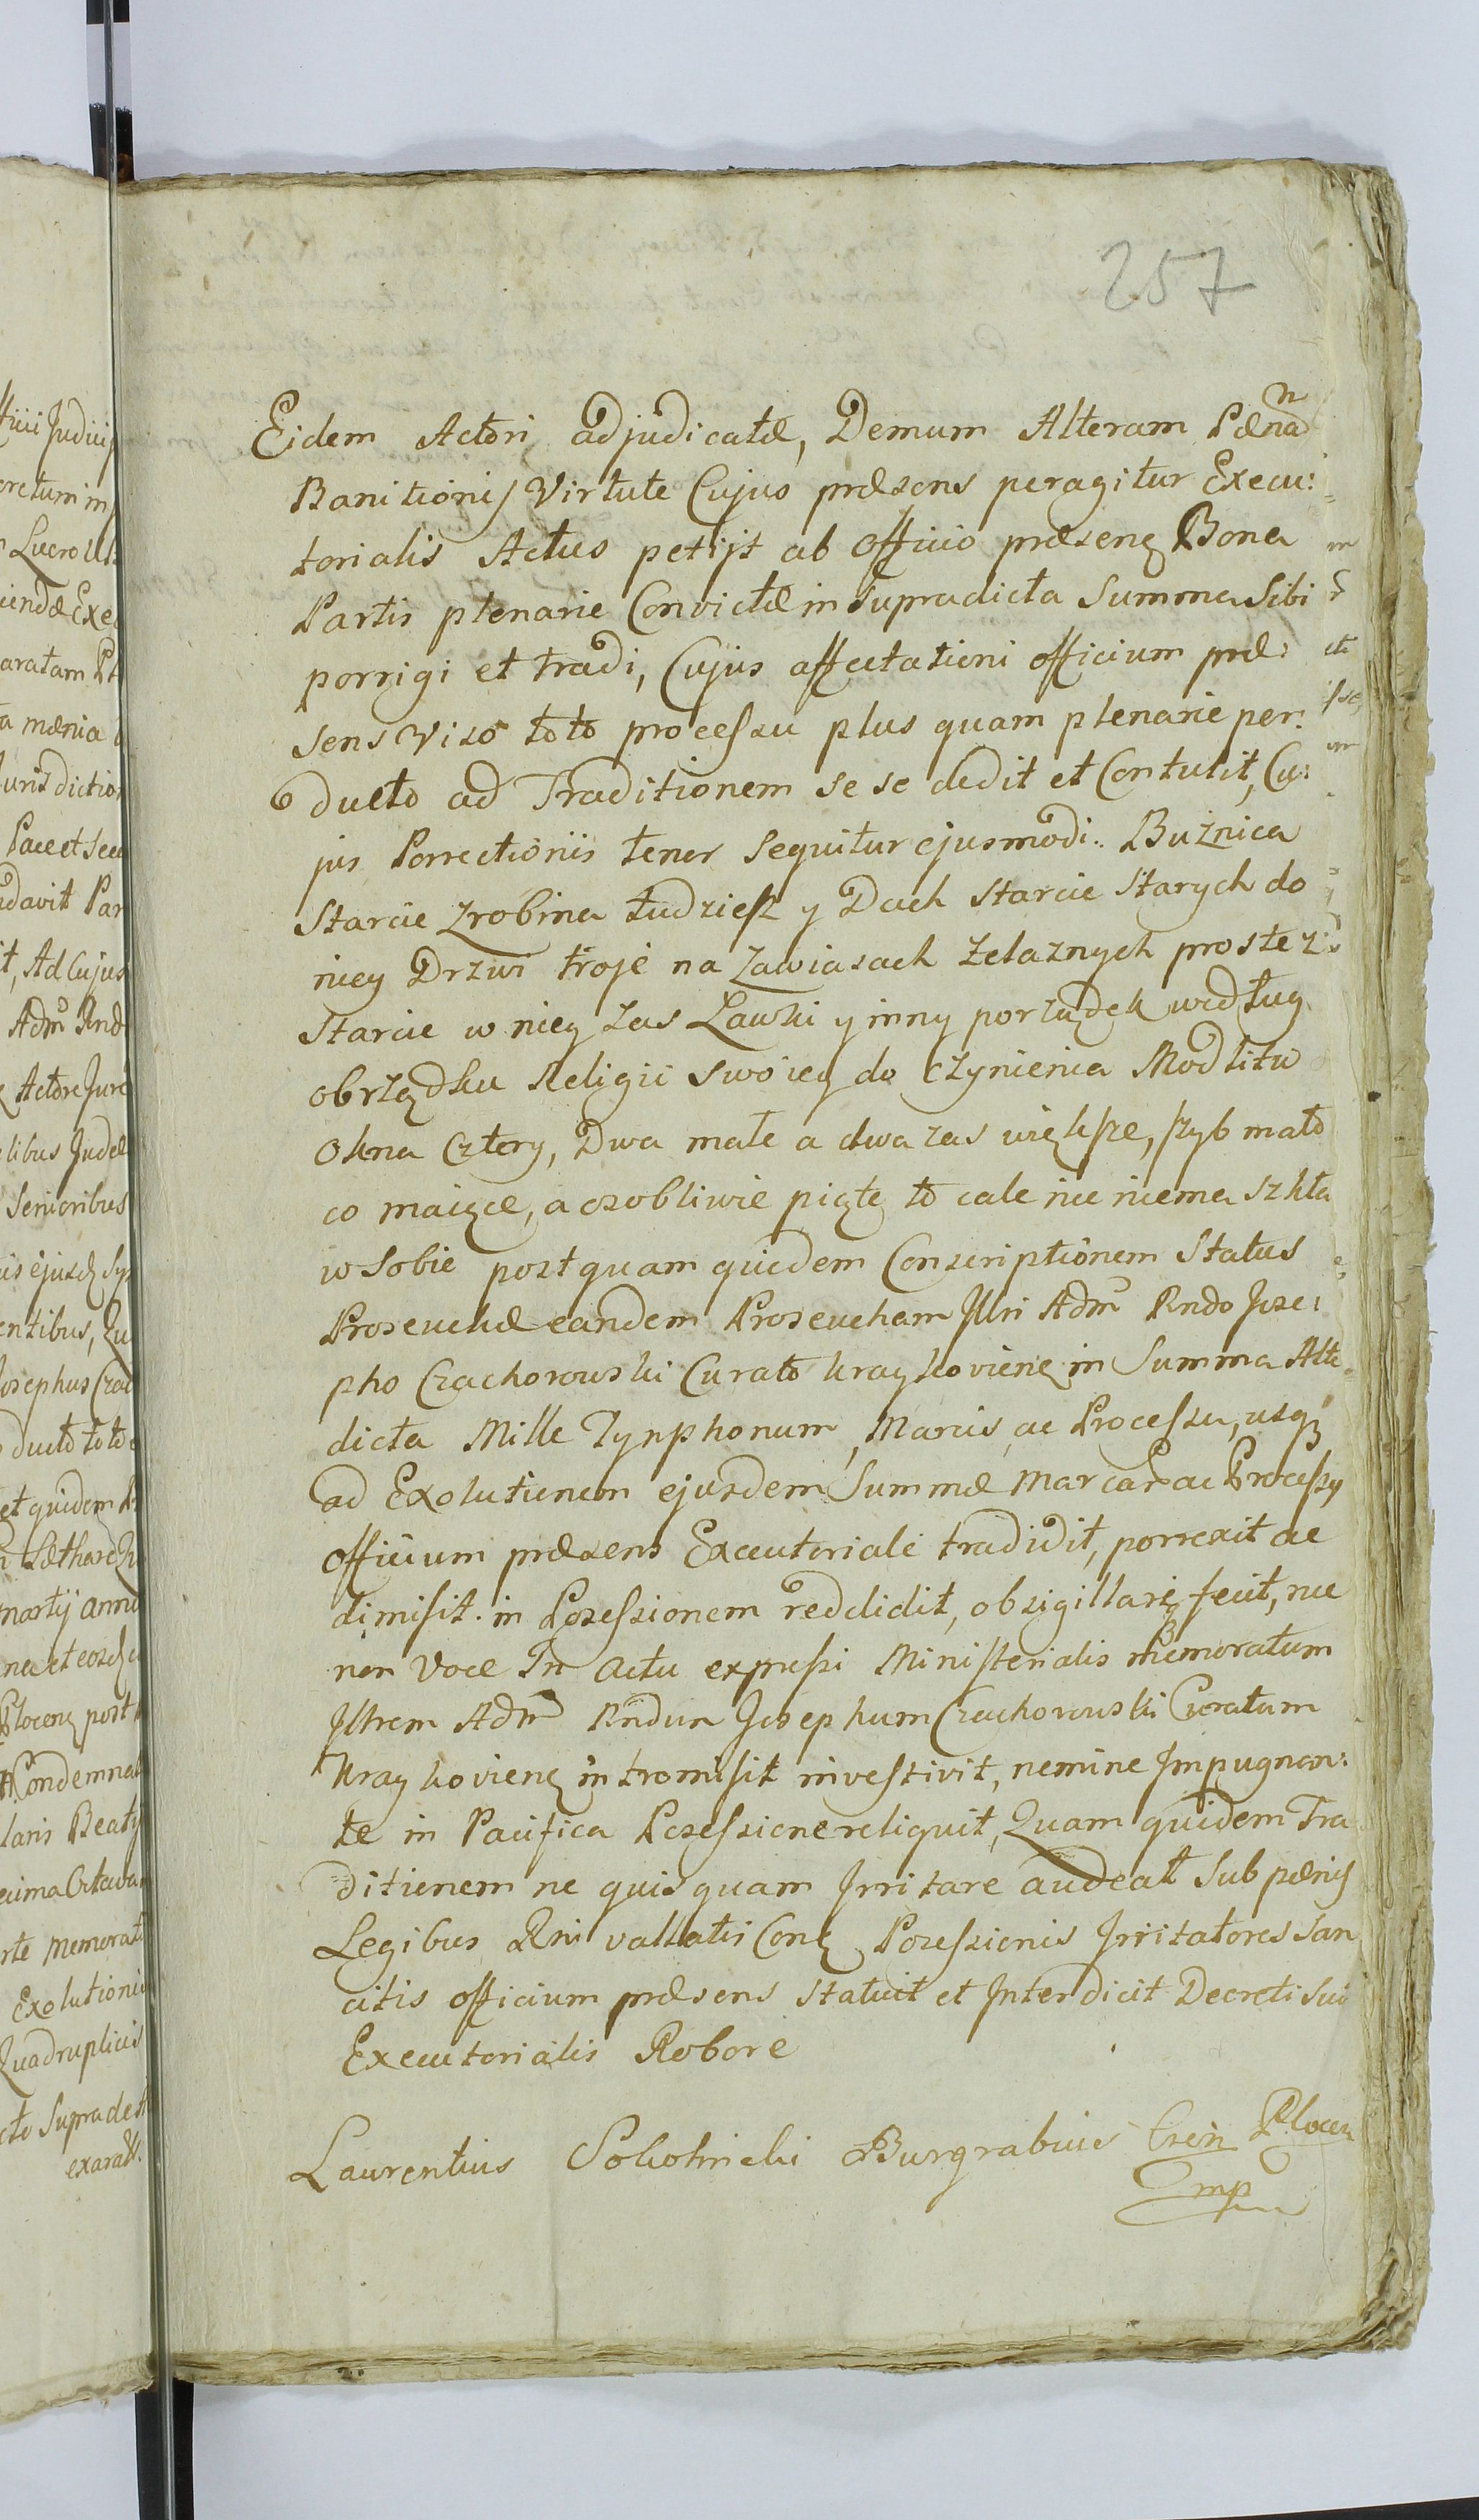 257
Eidem Actori adjudicatæ, Demum Alteram Pæna
Banitionis Virtute Cujus præsens peragitur Execu:
torialis Actus petijt ab Officio præsenẽ Bona
Partis plenarie Convictæ in supradicta Summa Sibi
porrigi et tradi, Cujus affectationi officium præ:
sens Viso toto processu plus quam plenarie per:
ducto ad Traditionem se se dedit et Contulit, Cu:
jus Porrectionis tenor sequitur ejusmodi: Buznica
Starcie zrobina tudziesz y Dach Starcie Starych do
niey Drzwi troje na zawiasach zelaznych proste z:
Starcie w niey zas Lawki y inny porządek według
obrządku Religii swoiey do czynienia Modlitw
Okna Cztery, Dwa małe a dwa zas większe, szyb mało
co maiące, a osobliwie piąte to cale nie niema szkła
w Sobie postquam quidem Conscriptionem Status
Proseuchæ eandem Proseucham Illri Adm Rndo Jose:
pho Czachorowski Curato kraykovienẽ in Summa Alte
dicta Mille Tynphonum, Marcis, ac Processu, usqȝ
ad Exolutionem ejusdem Summæ Marcar ac Processy
officium præsens Executoriale tradidit, porrexit ac
dimisit in Possessionem reddidit, obsigillariqȝ fecit, nec
non Voce In actu expressi Ministerialis rhemoratum
Illrem Adm Rndum Josephum Czachorowski Curatum
Kraykovienẽ intromisit investivit, nemine Impugnan:
te in Pacifica Possessione reliquit, Quam quidem Tra
ditionem ne quisquam Irritare audeat Sub pænis
Legibus Rni vallatis Conẽ Possessionis Irritatores San
citis officium præsens Statuit et Interdicit Decreti Sui
Executorialis Robore
Laurentius Sokolnicki Burgrabius Cren Plocen
mp